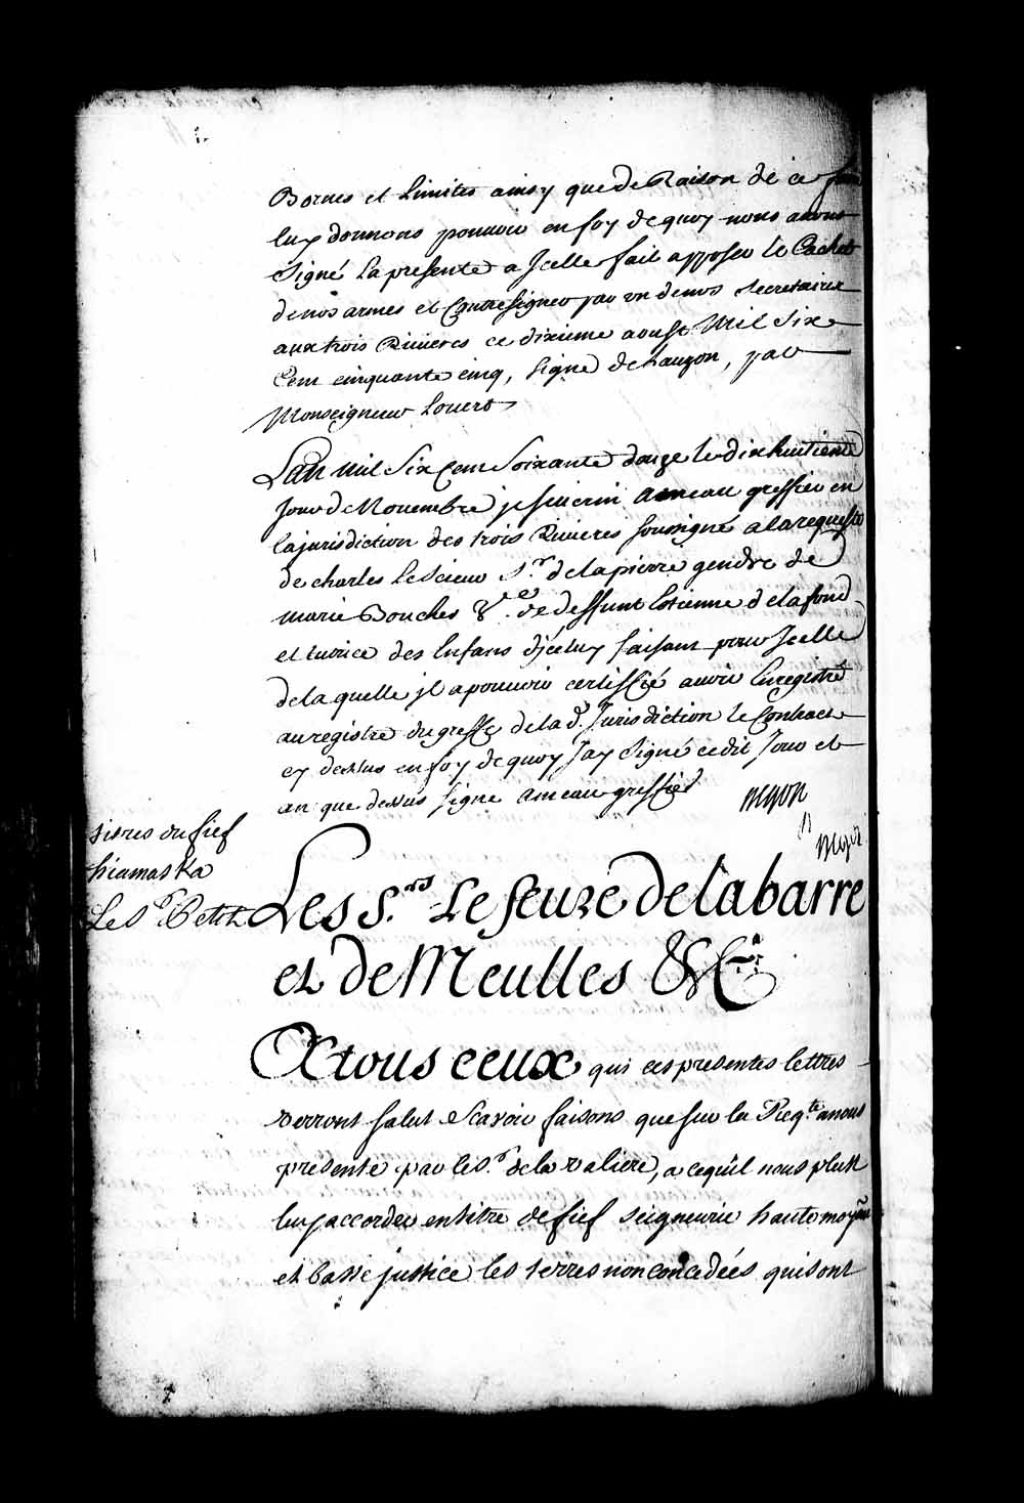 Bornes et Limites ainsy que de Raison de ce faire
luy donnons pouuoir en foy de quoy nous auons
signé la presente a Jcelle fait apposer le Cachet
de nos armes et Contresigner par vn de nos secretaires
aux trois Riuieres ce dixieme aoust Mil six
Cent cinquante cinq, signé de Lauzon, par
Monseigneur Rouer
Lan mil six cent soixante douze le dix huitieme
Jour de Nouembre je seuerin ameau greffier en
la jurisdiction des trois Riuieres soussigné a la requeste
de charles Lesieur S.r de la pierre gendre de
marie Boucher V.e de deffunt Estienne de la fond
et tutrice des Enfans d'jceluy faisant pour Jcelle
de laquelle jl a pouuoir certiffié auoir Enregistré
au registre du greffe de lad. Jurisdiction le Contract
cy dessus en foy de quoy Jay signé cedit Jour et
an que dessus signé ameau greffier
titres du fief
hiamaska
Le S.r Petit
Les S.rs Lefeure de la barre
et de Meulles &c
A tous ceux qui ces presentes lettres
verront salut sçavoir faisons que sur la Req.te a nous
presenté par le S.r de la valiere, a ce qu'il nous plust
luy accorder en titre de fief seigneurie haute moyenne
et basse justice les terres non concedées qui sont